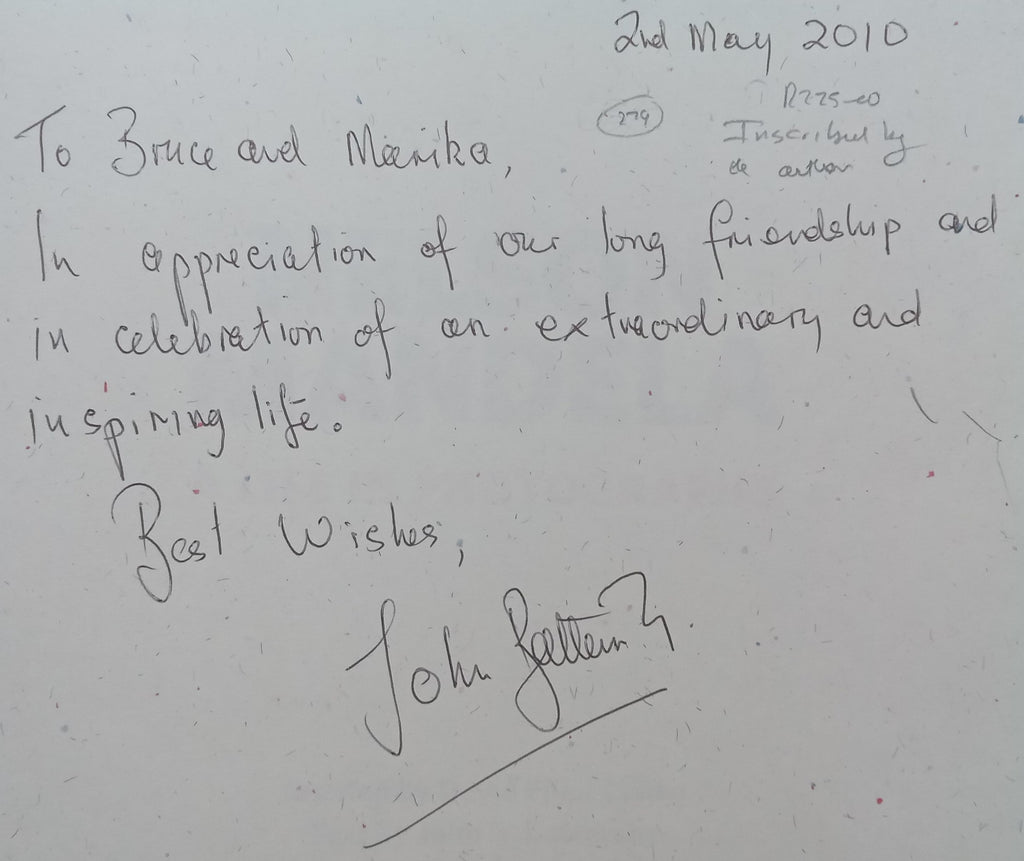 2nd May 2010
R225-00
(279)
Inscribed by
de author
To Bruce and Marika,
In appreciation of our long friendship and
in celebration of an extraordinary and
inspiring life.
Best Wishes,
John